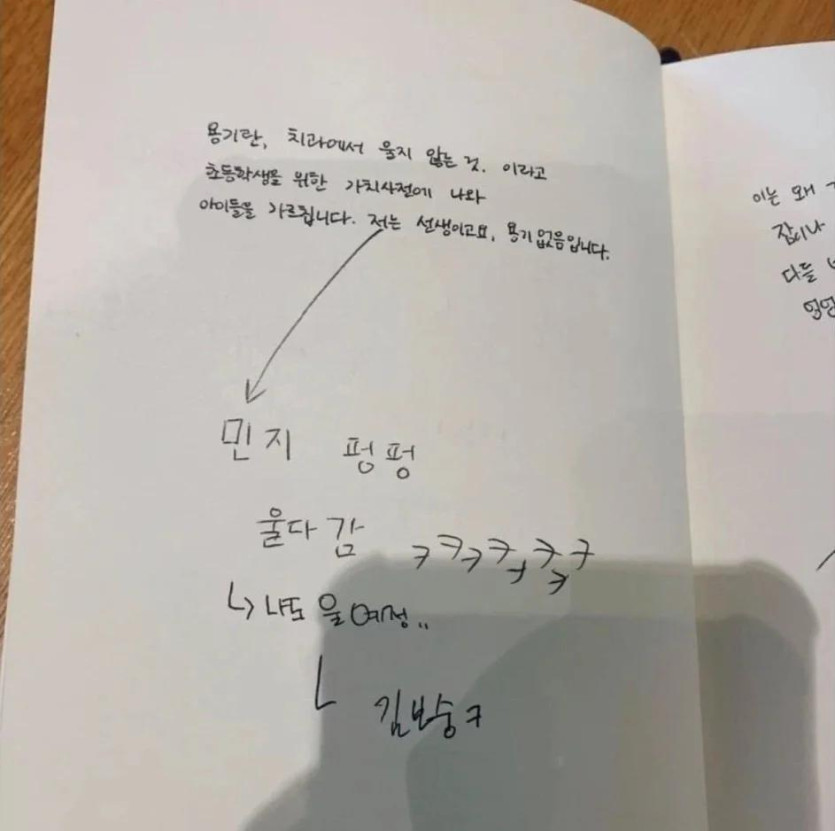 용기란, 치과에서 울지 않는 것. 이라고
초등학생을 위한 가치사전에 나와
아이들을 가르칩니다. 저는 선생이고요, 용기 없음입니다.
민지 펑펑
울다 감 ㅋㅋㅋㅋㅋㅋㅋㅋ
↳ 나도 울 예정..
ㄴ 김보숭ㅋ
이는 왜
잡이나
다들
엉엉